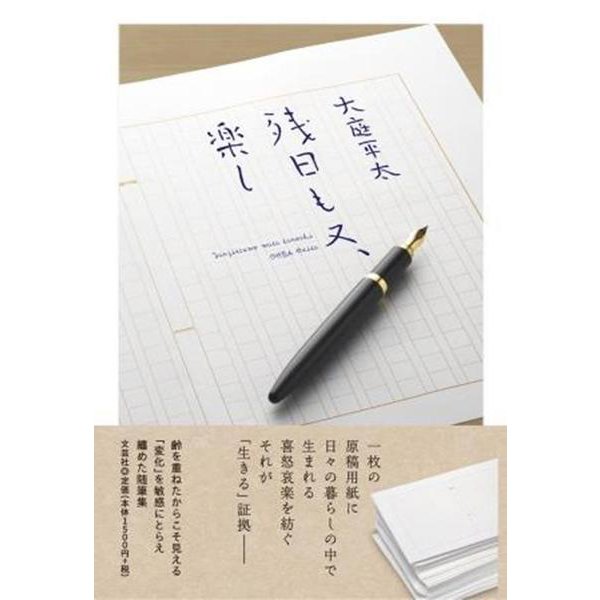 大庭平太
残日も又、
楽し
zanjitsumo mata tanoshi
OHBA Heita
一枚の
原稿用紙に
日々の暮らしの中で
生まれる
喜怒哀楽を紡ぐ
それが
「生きる」証拠――
齢を重ねたからこそ見える
「変化」を敏感にとらえ
纏めた随筆集
文芸社◎定価(本体1500円+税)